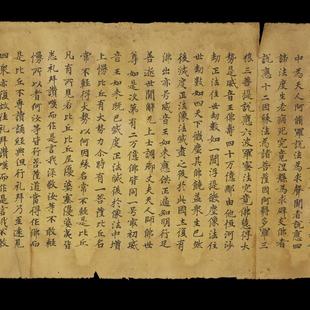 中為天人阿脩羅說法為求聲聞者說應四
諦法度生老病死究竟涅槃為求辟支佛者
說應十二因緣法為諸菩薩因阿耨多羅三
藐三菩提說應六波羅蜜法究竟佛慧得大
勢是威音王佛壽四十万億那由他恒河沙
劫正法住世劫數如一閻浮提微塵像法住
世劫數如四天下微塵其佛饒益眾生已然
後滅度正法像法滅盡之後於此國土復有
佛出亦号威音王如來應供正遍知明行足
善逝世間解无上士調御丈夫天人師佛世
尊如是次第有二万億佛皆同一号最初威
音王如來既已滅度正法滅後於像法中增
上慢比丘有大勢力尒時有一菩薩比丘名
常不輕得大勢以何因緣名常不輕是比丘
凡有所見若比丘比丘尼優婆塞優婆夷皆
悉礼拜讚嘆而作是言我深敬汝等不敢輕
慢所以者何汝等皆行菩薩道當得作佛而
是比丘不專讀誦經典但行礼拜乃至遠見
四眾亦復故往礼拜讚嘆而作是言我不敢